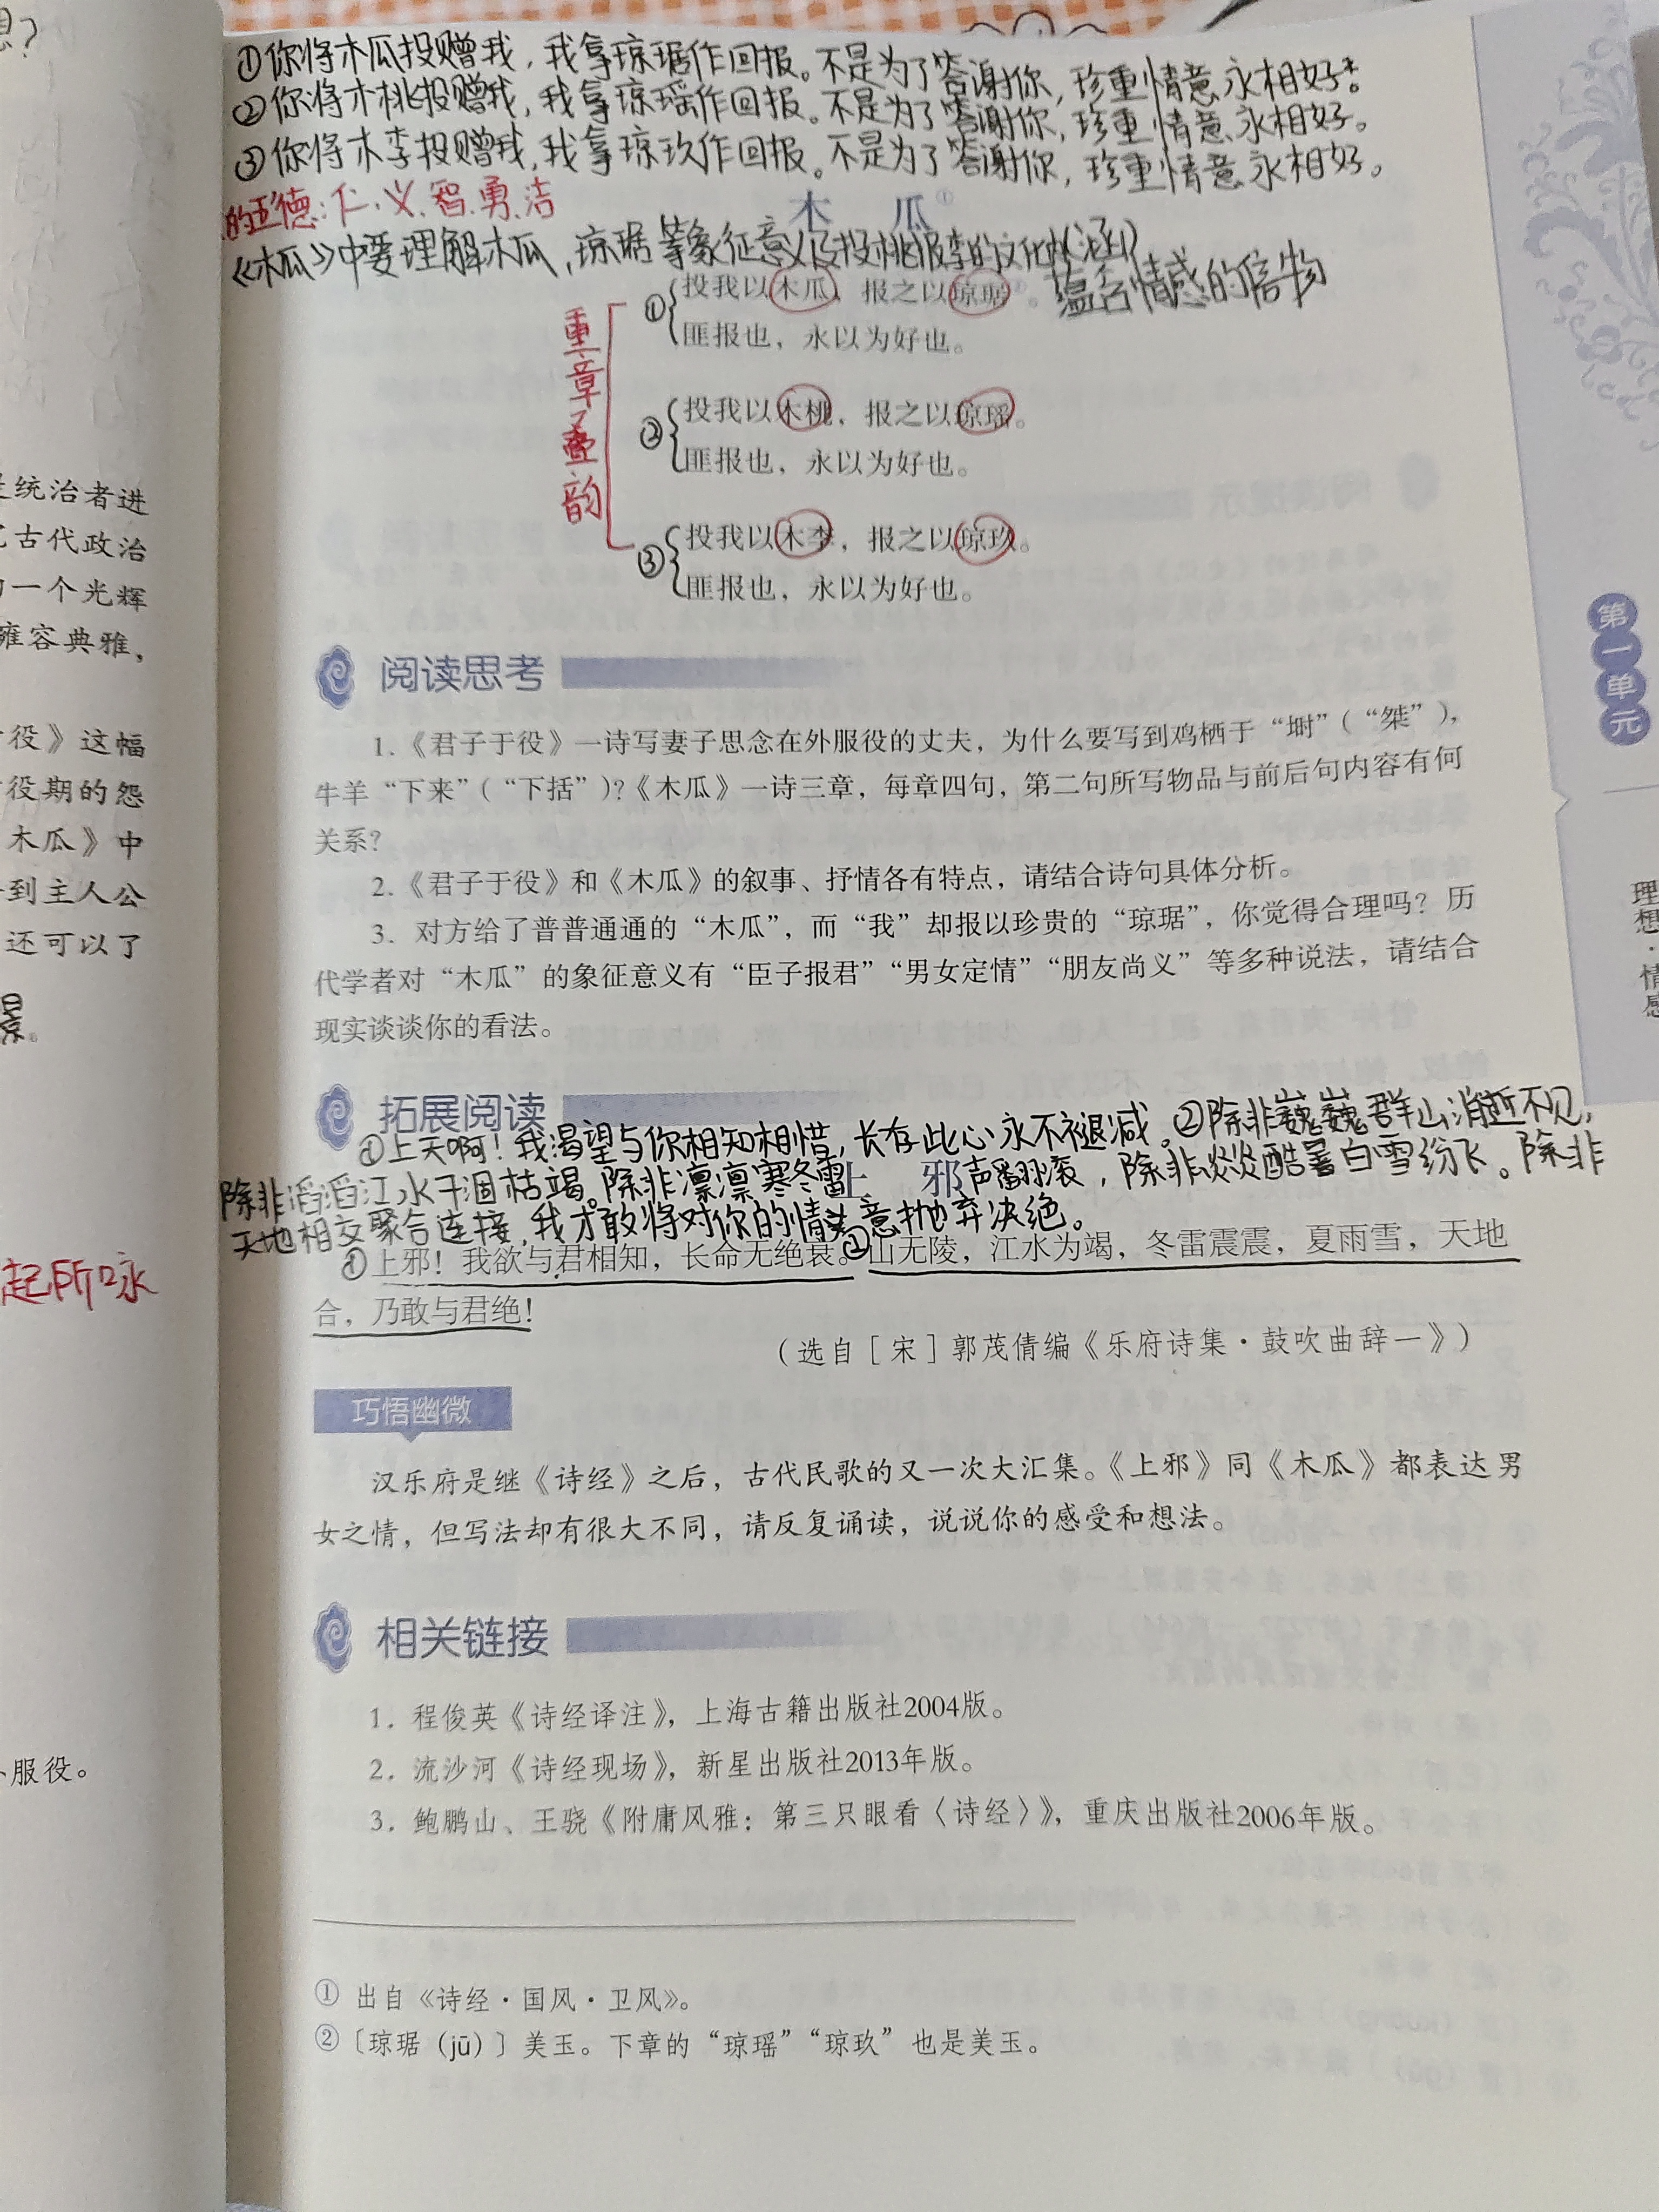 想？
统治者进
古代政治
一个光辉
雍容典雅，
役》这幅
役期的怨
木瓜》中
到主人公
还可以了
景。
起所咏
服役。
①你将木瓜投赠我，我拿琼琚作回报。不是为了答谢你，珍重情意永相好。
②你将木桃投赠我，我拿琼瑶作回报。不是为了答谢你，珍重情意永相好。
③你将木李投赠我，我拿琼玖作回报。不是为了答谢你，珍重情意永相好。
的五德：仁、义、智、勇、洁
木 瓜①
《木瓜》中要理解木瓜，琼琚等象征意义及投桃报李的文化内涵
蕴含情感的信物
重章叠韵
①投我以木瓜，报之以琼琚。
匪报也，永以为好也。
②投我以木桃，报之以琼瑶。
匪报也，永以为好也。
③投我以木李，报之以琼玖。
匪报也，永以为好也。
阅读思考
1.《君子于役》一诗写妻子思念在外服役的丈夫，为什么要写到鸡栖于“埘”（“桀”），
牛羊“下来”（“下括”）？《木瓜》一诗三章，每章四句，第二句所写物品与前后句内容有何
关系？
2.《君子于役》和《木瓜》的叙事、抒情各有特点，请结合诗句具体分析。
3. 对方给了普普通通的“木瓜”，而“我”却报以珍贵的“琼琚”，你觉得合理吗？历
代学者对“木瓜”的象征意义有“臣子报君”“男女定情”“朋友尚义”等多种说法，请结合
现实谈谈你的看法。
拓展阅读
①上天啊！我渴望与你相知相惜，长存此心永不褪减。②除非巍巍群山消逝不见，
除非滔滔江水干涸枯竭。除非凛凛寒冬雷声翻滚，除非炎炎酷暑白雪纷飞。除非
天地相交聚合连接，我才敢将对你的情意抛弃决绝。
上 邪
①上邪！我欲与君相知，长命无绝衰。②山无陵，江水为竭，冬雷震震，夏雨雪，天地
合，乃敢与君绝！
（选自［宋］郭茂倩编《乐府诗集·鼓吹曲辞一》）
巧悟幽微
汉乐府是继《诗经》之后，古代民歌的又一次大汇集。《上邪》同《木瓜》都表达男
女之情，但写法却有很大不同，请反复诵读，说说你的感受和想法。
相关链接
1. 程俊英《诗经译注》，上海古籍出版社2004版。
2. 流沙河《诗经现场》，新星出版社2013年版。
3. 鲍鹏山、王骁《附庸风雅：第三只眼看〈诗经〉》，重庆出版社2006年版。
① 出自《诗经·国风·卫风》。
② 〔琼琚（jū）〕美玉。下章的“琼瑶”“琼玖”也是美玉。
第一单元
理想·情感